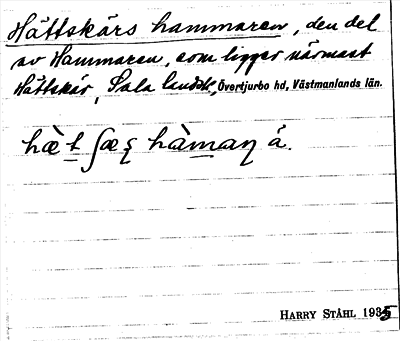 Hättskärs hammaren, den del
av Hammaren, som ligger närmast
Hättskär, Sala landsk, Övertjurbo hd, Västmanlands län.
hæ̀t ʃæʂ hàmaɳ å.
HARRY STÅHL 1935